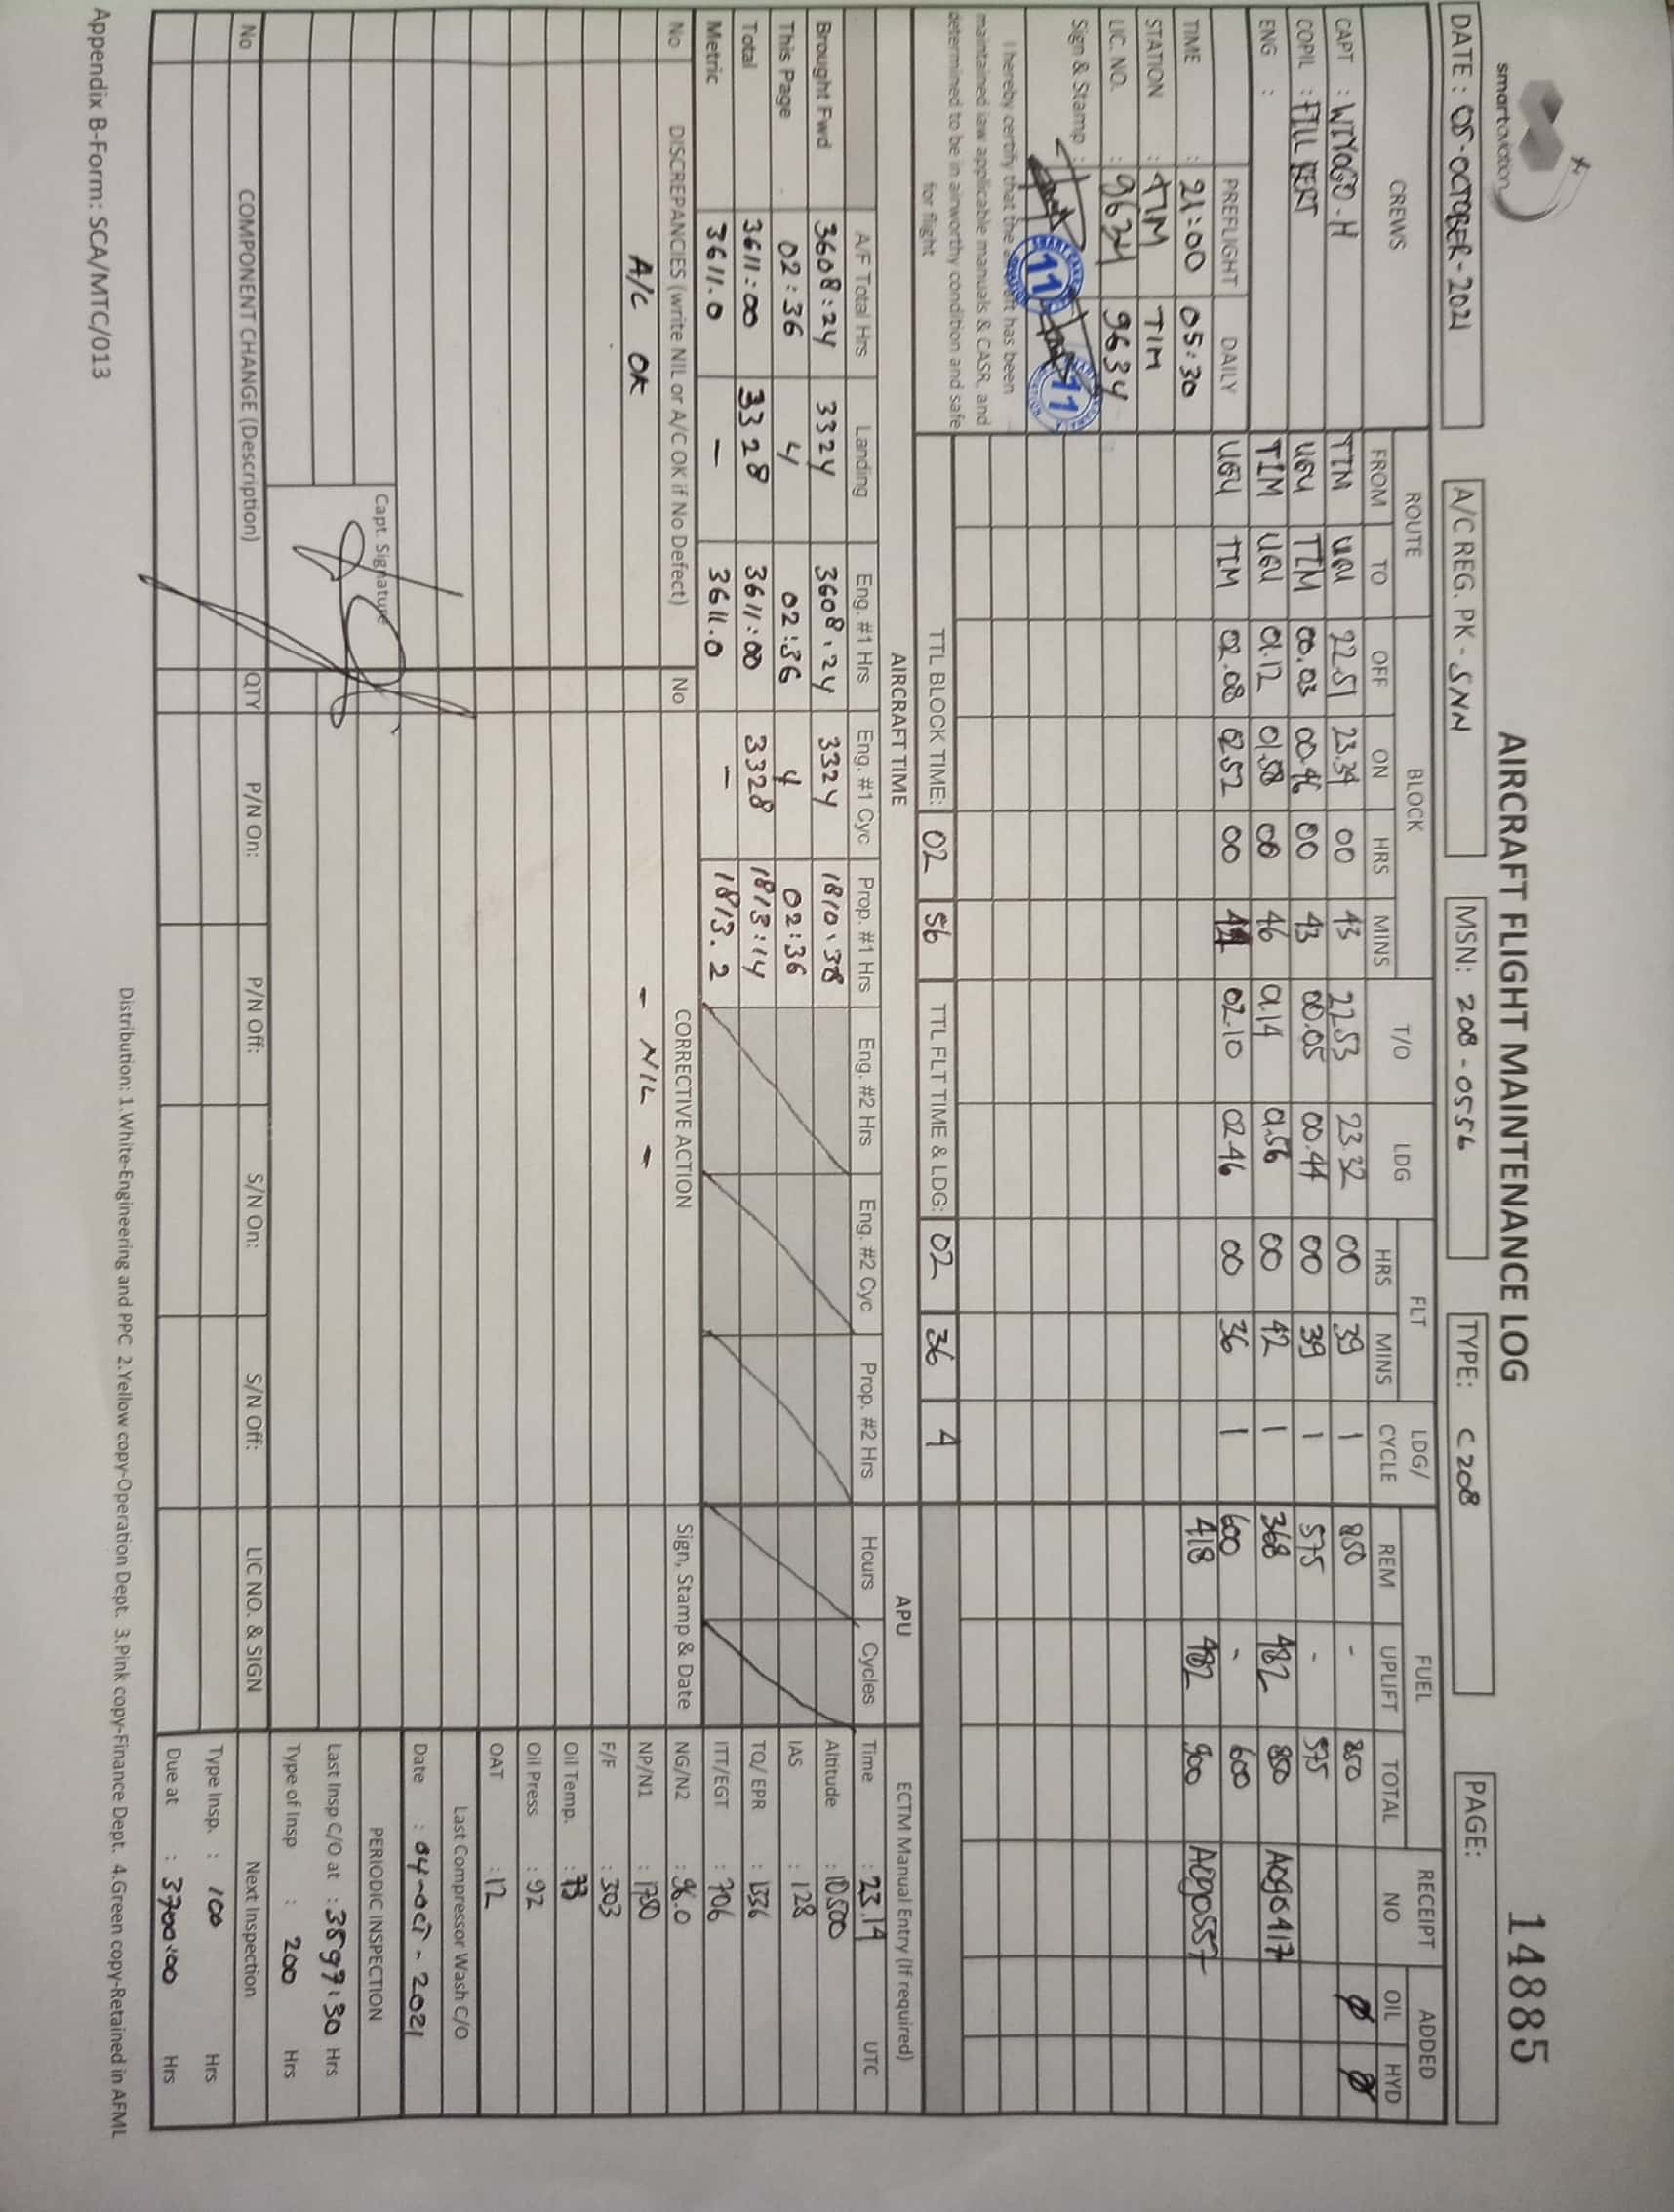 smartaviation
AIRCRAFT FLIGHT MAINTENANCE LOG
14885
DATE : 05-OCTOBER-2021 A/C REG. PK - SNN MSN: 208 - 0556 TYPE: C 208 PAGE:
CREWS ROUTE BLOCK T/O LDG FLT LDG/ CYCLE FUEL RECEIPT NO ADDED
FROM TO OFF ON HRS MINS HRS MINS REM UPLIFT TOTAL OIL HYD
CAPT : WIYOGO - H TIM UGU 22.51 23.34 00 43 22.53 23.32 00 39 1 850 - 850 Ø Ø
COPIL : FILLBERT UGU TIM 00.03 00.46 00 43 00.05 00.44 00 39 1 575 - 575
ENG : TIM UGU 01.12 01.58 00 46 01.14 01.56 00 42 1 368 482 850
PREFLIGHT DAILY UGU TIM 02.08 02.52 00 44 02.10 02.46 00 36 1 600 - 600
TIME : 21:00 05:30 418 482 900
STATION : TIM TIM
LIC. NO. : 9634 9634
Sign & Stamp :
11 11
I hereby certify that the aircraft has been
maintained iaw applicable manuals & CASR, and
determined to be in airworthy condition and safe
for flight
TTL BLOCK TIME: 02 56 TTL FLT TIME & LDG: 02 36 4
AIRCRAFT TIME APU ECTM Manual Entry (If required)
A/F Total Hrs Landing Eng. #1 Hrs Eng. #1 Cyc Prop. #1 Hrs Eng. #2 Hrs Eng. #2 Cyc Prop. #2 Hrs Hours Cycles Time : 23.14 UTC
Brought Fwd 3608:24 3324 3608:24 3324 1810:38 Altitude : 10500
This Page 02:36 4 02:36 4 02:36 IAS : 128
Total 3611:00 3328 3611:00 3328 1813:14 TQ/ EPR : 1336
Metric 3611.0 - 3611.0 - 1813.2 ITT/EGT : 706
No DISCREPANCIES (write NIL or A/C OK if No Defect) No CORRECTIVE ACTION Sign, Stamp & Date NG/N2 : 96.0
A/C OK - NIL - NP/N1 : 1750
F/F : 303
Oil Temp. : 73
Oil Press : 92
OAT : 12
Last Compressor Wash C/O
Date : 04-OCT-2021
Capt. Signature
PERIODIC INSPECTION
Last Insp C/O at : 3597:30 Hrs
Type of Insp : 200 Hrs
No COMPONENT CHANGE (Description) QTY P/N On: P/N Off: S/N On: S/N Off: LIC NO. & SIGN Next Inspection
Type Insp. : 100 Hrs
Due at : 3700:00 Hrs
Distribution: 1.White-Engineering and PPC 2.Yellow copy-Operation Dept. 3.Pink copy-Finance Dept. 4.Green copy-Retained in AFML
Appendix B-Form: SCA/MTC/013